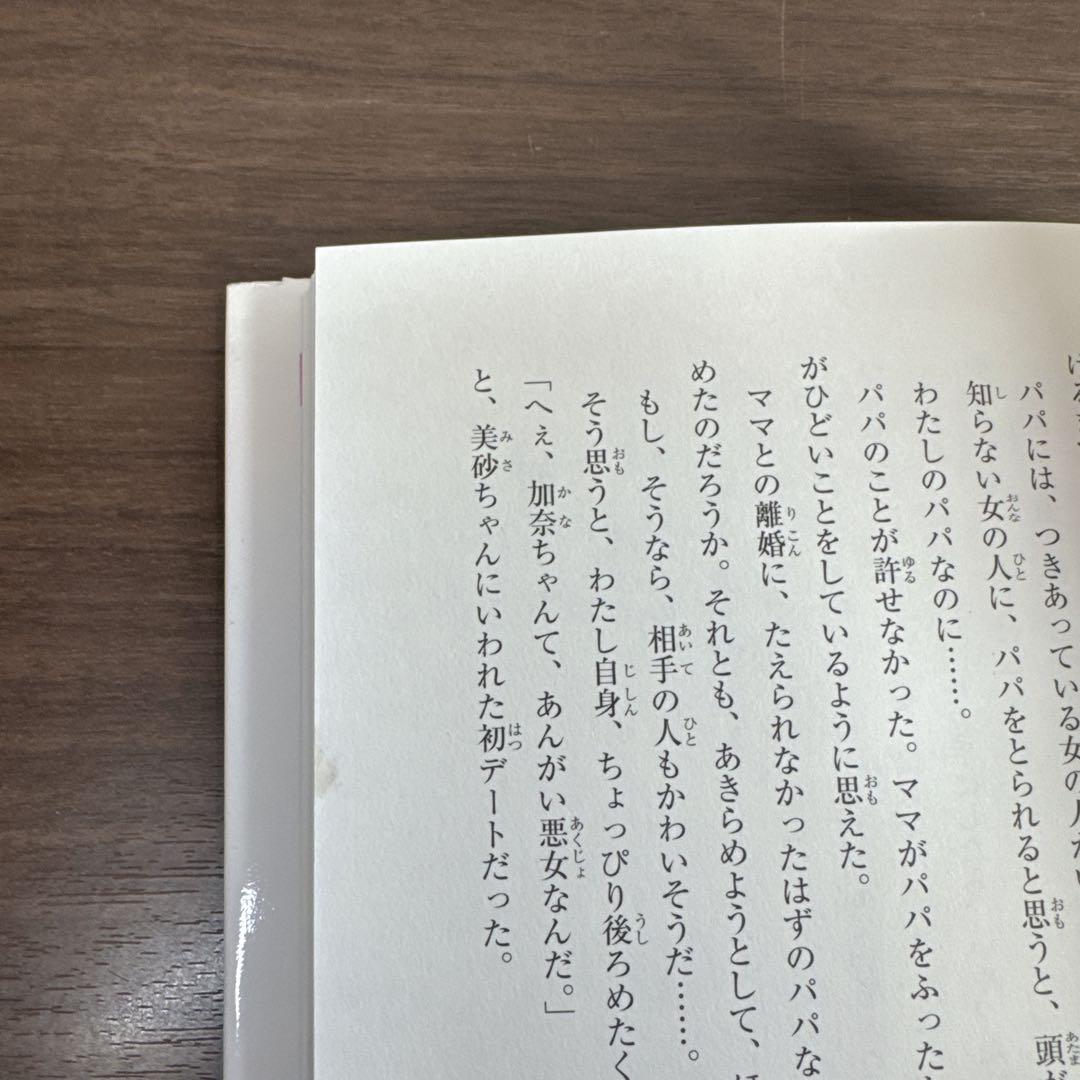 パパには、つきあっている女の人が
知らない女の人に、パパをとられると思うと、頭が
わたしのパパなのに……。
パパのことが許せなかった。ママがパパをふった
がひどいことをしているように思えた。
ママとの離婚に、たえられなかったはずのパパな
めたのだろうか。それとも、あきらめようとして、
もし、そうなら、相手の人もかわいそうだ……。
そう思うと、わたし自身、ちょっぴり後ろめたく
「へぇ、加奈ちゃんて、あんがい悪女なんだ。」
と、美砂ちゃんにいわれた初デートだった。